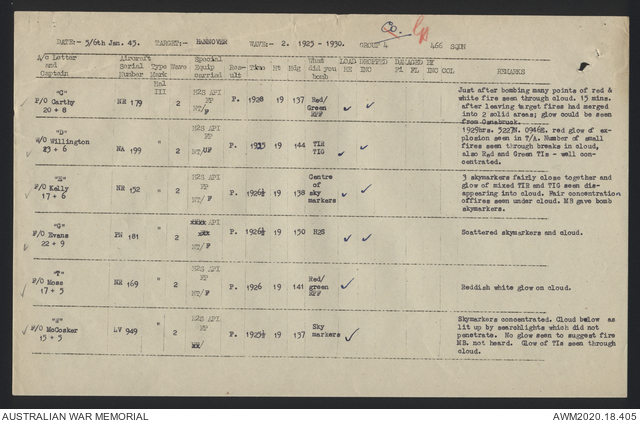 DATE:- 5/6th Jan. 45. TARGET:- HANNOVER WAVE:- 2. 1925 - 1930. GROUP 4 466 SQDN
A/c Letter and Captain Aircraft Serial Number Type Mark Wave Special Equip carried Result Time Ht Hdg What did you bomb LOAD DROPPED HE INC DAMAGED BY Fl FL INC COL REMARKS
Hal III
"C" F/O Carthy 20 + 8 NR 179 " 2 H2S API FP NT/F P. 1928 19 137 Red/ Green RFF ✓ ✓
Just after bombing many points of red &
white fire seen through cloud. 15 mins.
after leaving target fires had merged
into 2 solid areas; glow could be seen
from Osnabruck.
"D" W/O Willington 23 + 6 NA 199 " 2 H2S API FP NT/F P. 19 144 TIR TIG ✓ ✓
1929hrs. 5227N. 0946E. red glow of ex-
plosion seen in T/A. Number of small
fires seen through breaks in cloud,
also Red and Green TIs - well con-
centrated.
"E" F/O Kelly 17 + 6 NR 152 " 2 H2S API FP NT/F P. 1926½ 19 138 Centre of sky markers ✓ ✓
3 skymarkers fairly close together and
glow of mixed TIR and TIG seen dis-
appearing into cloud. Fair concentration
offires seen under cloud. MB gave bomb
skymarkers.
"G" F/O Evans 22 + 9 181 " 2 xxxx API xxx NT/F P. 1926½ 19 150 H2S ✓ ✓
Scattered skymarkers and cloud.
"T" F/O Moss 17 + 5 NR 169 " 2 H2S API FP NT/F P. 1926 19 141 Red/ green RFF ✓
Reddish white glow on cloud.
F/O McCosker 15 + 5 LV 949 " 2 H2S API FP xx/ P. 1925½ 19 137 Sky markers ✓
Skymarkers concentrated. Cloud below as
lit up by searchlights which did not
penetrate. No glow seen to suggest fire
MB. not heard. Glow of TIs seen through
cloud.
AUSTRALIAN WAR MEMORIAL AWM2020.18.405